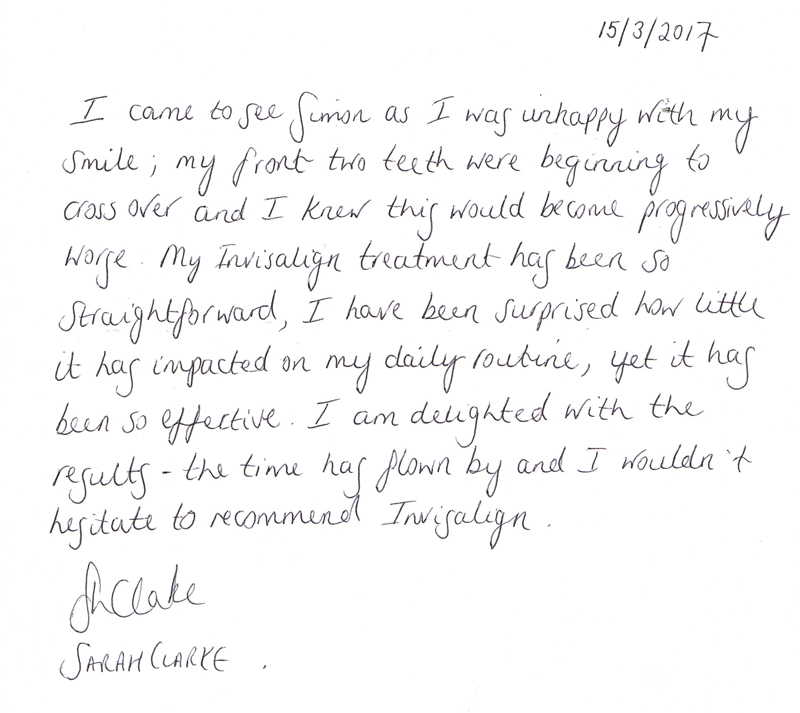 15/3/2017
I came to see Simon as I was unhappy with my
smile; my front two teeth were beginning to
cross over and I knew this would become progressively
worse. My Invisalign treatment has been so
straightforward, I have been surprised how little
it has impacted on my daily routine, yet it has
been so effective. I am delighted with the
results - the time has flown by and I wouldn't
hesitate to recommend Invisalign.
ShClarke
SARAH CLARKE.